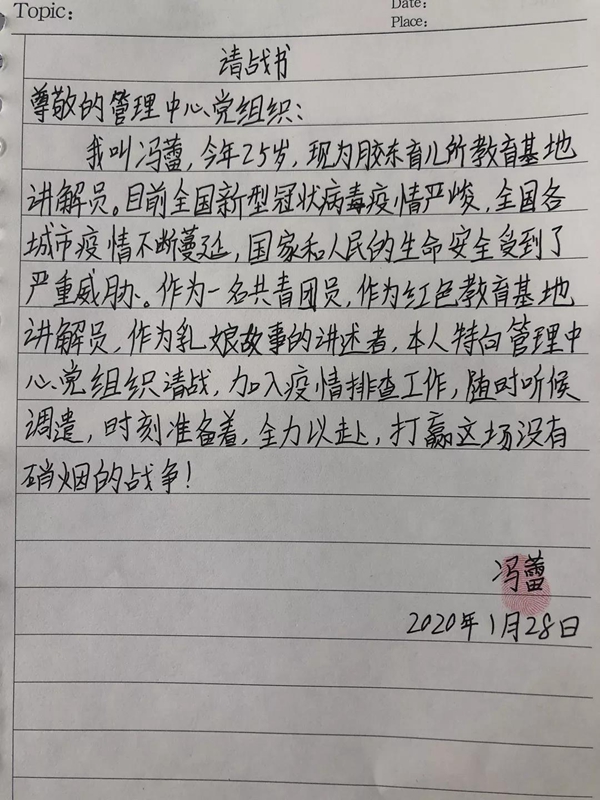 Topic:
Date:
Place:
请战书
尊敬的管理中心党组织:
我叫冯蕾,今年25岁,现为胶东育儿所教育基地
讲解员。目前全国新型冠状病毒疫情严峻,全国各
城市疫情不断蔓延,国家和人民的生命安全受到了
严重威胁。作为一名共青团员,作为红色教育基地
讲解员,作为乳娘故事的讲述者,本人特向管理中
心党组织请战,加入疫情排查工作,随时听候
调遣,时刻准备着,全力以赴,打赢这场没有
硝烟的战争!
冯蕾
2020年1月28日